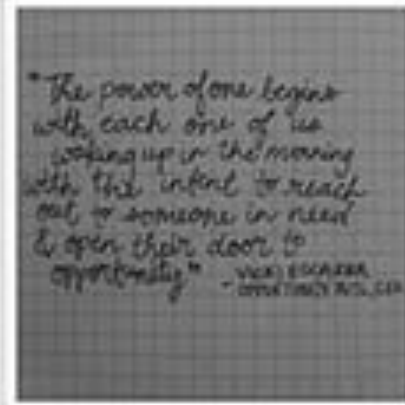 "The power of one begins
with each one of us
waking up in the morning
with the intent to reach
out to someone in need
& open their door to
opportunity"
- VICKI ESCARRA
OPPORTUNITY INTL, CEO